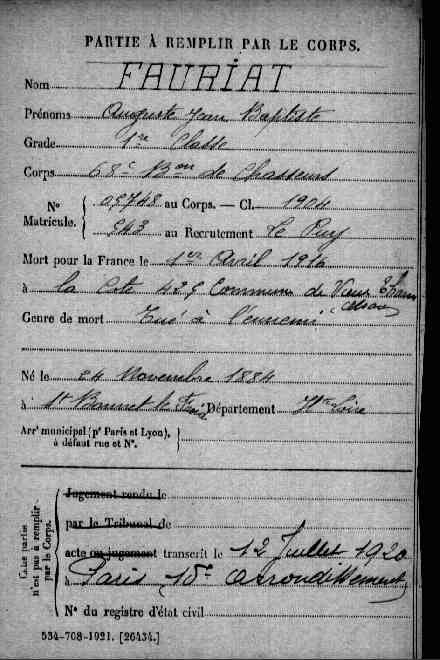 PARTIE À REMPLIR PAR LE CORPS.
Nom FAURIAT
Prénoms Auguste Jean Baptiste
Grade 1re Classe
Corps 68e Bon de Chasseurs
N° Matricule. 05748 au Corps. — Cl. 1904
943 au Recrutement Le Puy
Mort pour la France le 1er Avril 1916
à la Cote 425 Commune de Vieux Thann
Genre de mort Tué à l'ennemi
Né le 24 Novembre 1884
à St Bonnet le Froid Département Hte Loire
Arrt municipal (pr Paris et Lyon), à défaut rue et N°.
Cette partie n'est pas à remplir par le Corps.
Jugement rendu le
par le Tribunal de
acte ou jugement transcrit le 12 Juillet 1920
à Paris 18e arrondissement
N° du registre d'état civil
534-708-1921. [26434.]